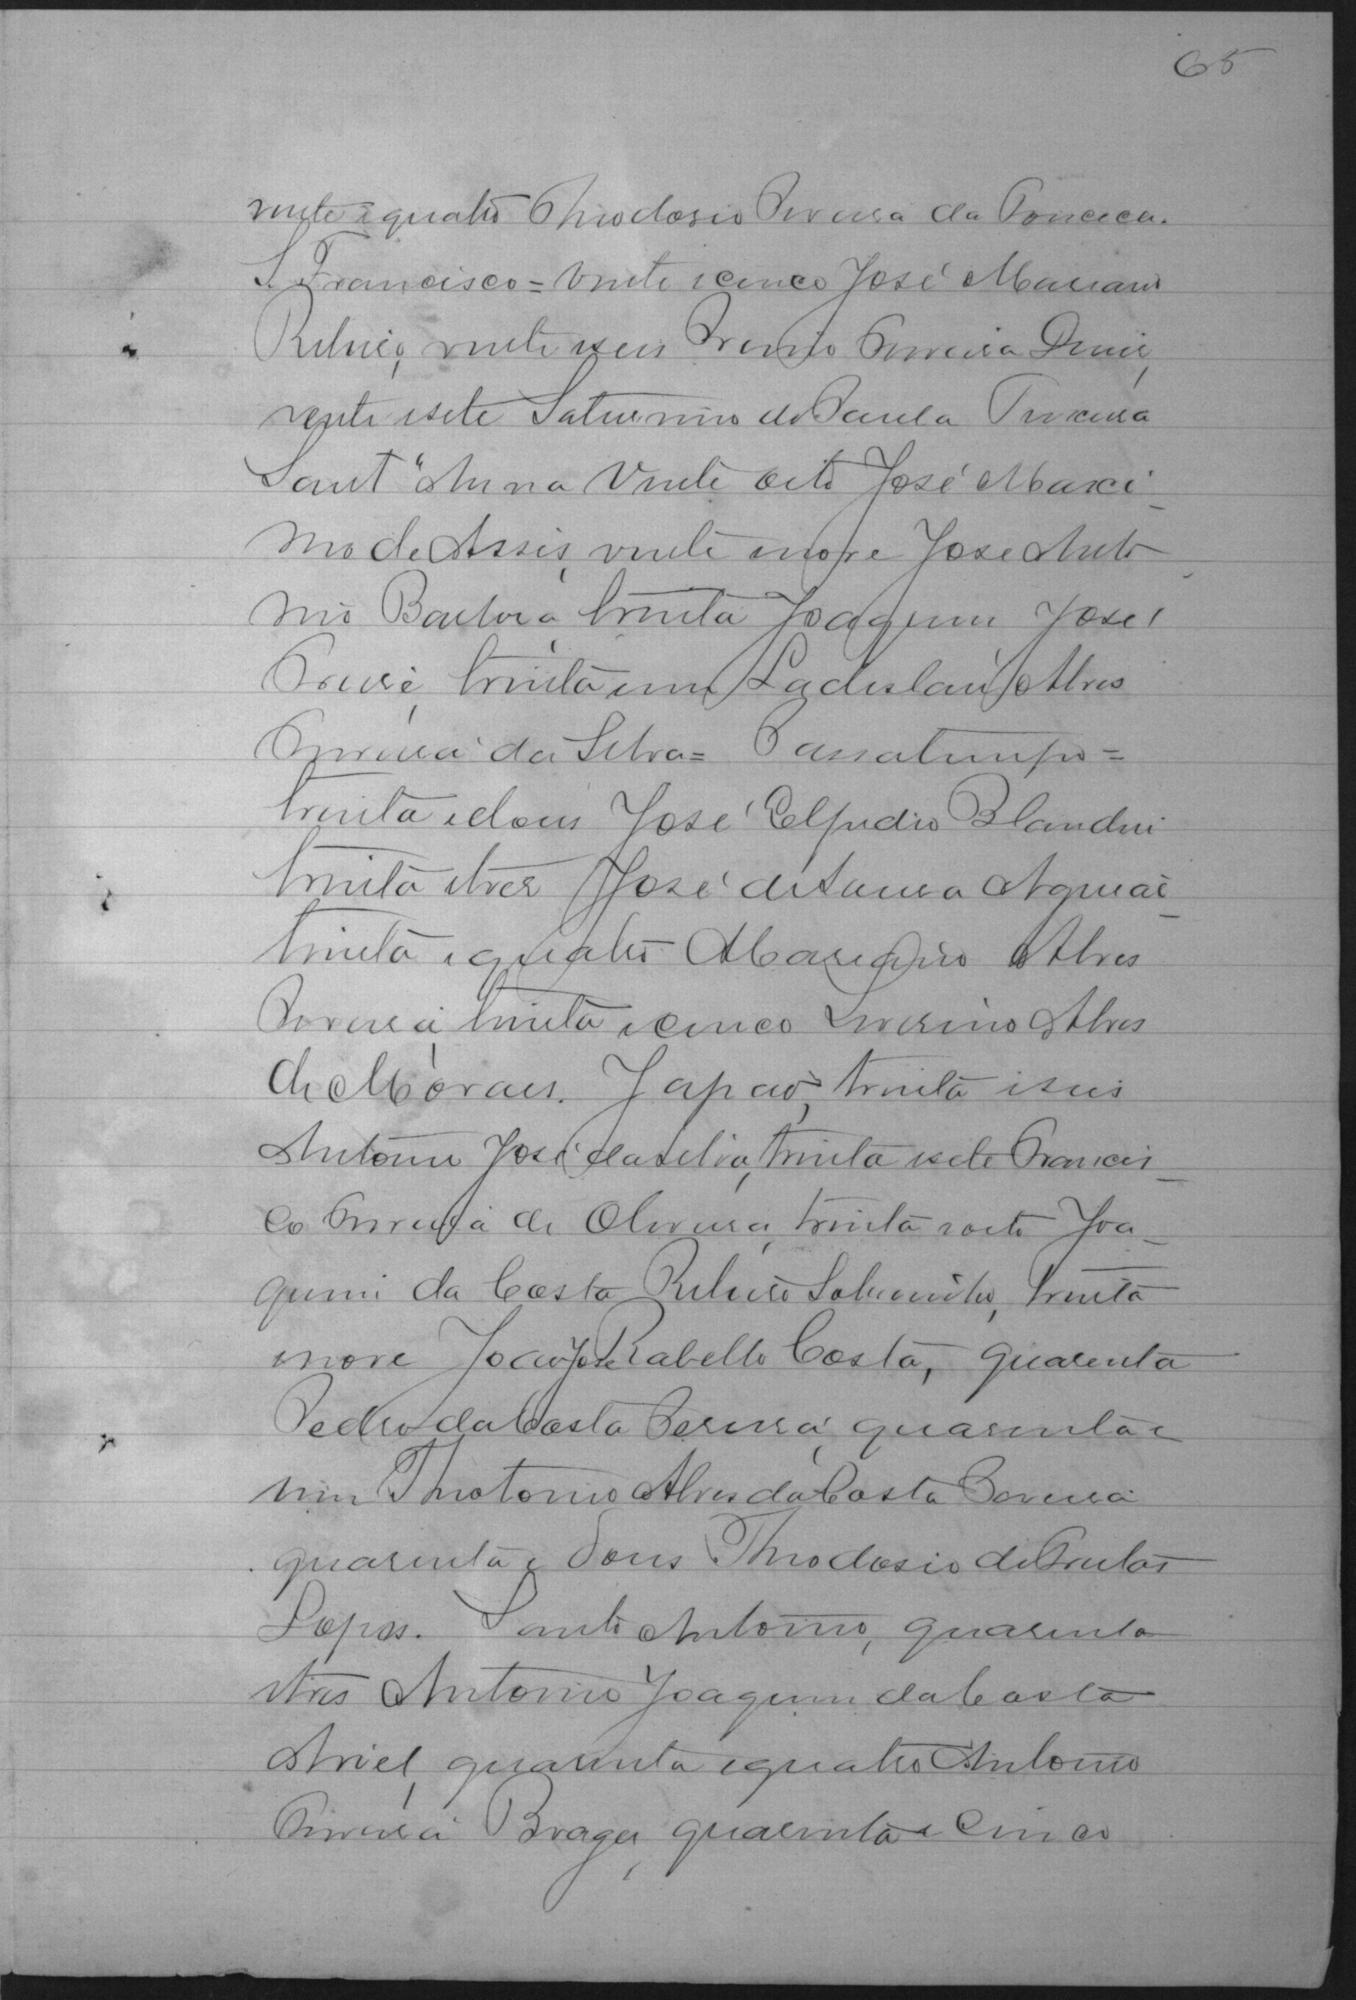 65
vinte e quatro Theodosio Pereira da Fonceca.
S. Francisco = vinte e cinco José Mariano
Ribeiro, vinte e seis Ferreira Diniz,
vinte e sete Saturnino de Paula Teixeira
Sant'Anna Vinte oito José Maxi-
mo de Assis, vinte e nove José Anto-
nio Barbosa, trinta Joaquim José
Freire, trinta e um Ladislau Alves
Ferreira da Silva = Passatempo =
trinta e dous José Elpidio Blandin
trinta e tres José de Aguiar
trinta e quatro Alves
Pereira, trinta e cinco Severino Alves
de Moraes. Japão, trinta e seis
Antonio José da Silva, trinta e sete Francis-
co Ferreira de Oliveira, trinta e oito Joa-
quim da Costa Ribeiro Sobrinho, trinta
e nove João José Rabello Costa, quarenta
Pedro da Costa Pereira, quarenta e
um Theotonio Alves da Costa Pereira
quarenta e dous Theodosio de Freitas
Lopes. Santo Antonio, quarenta
e tres Antonio Joaquim da Costa
Ariel, quarenta e quatro Antonio
Ferreira Braga, quarenta e cinco